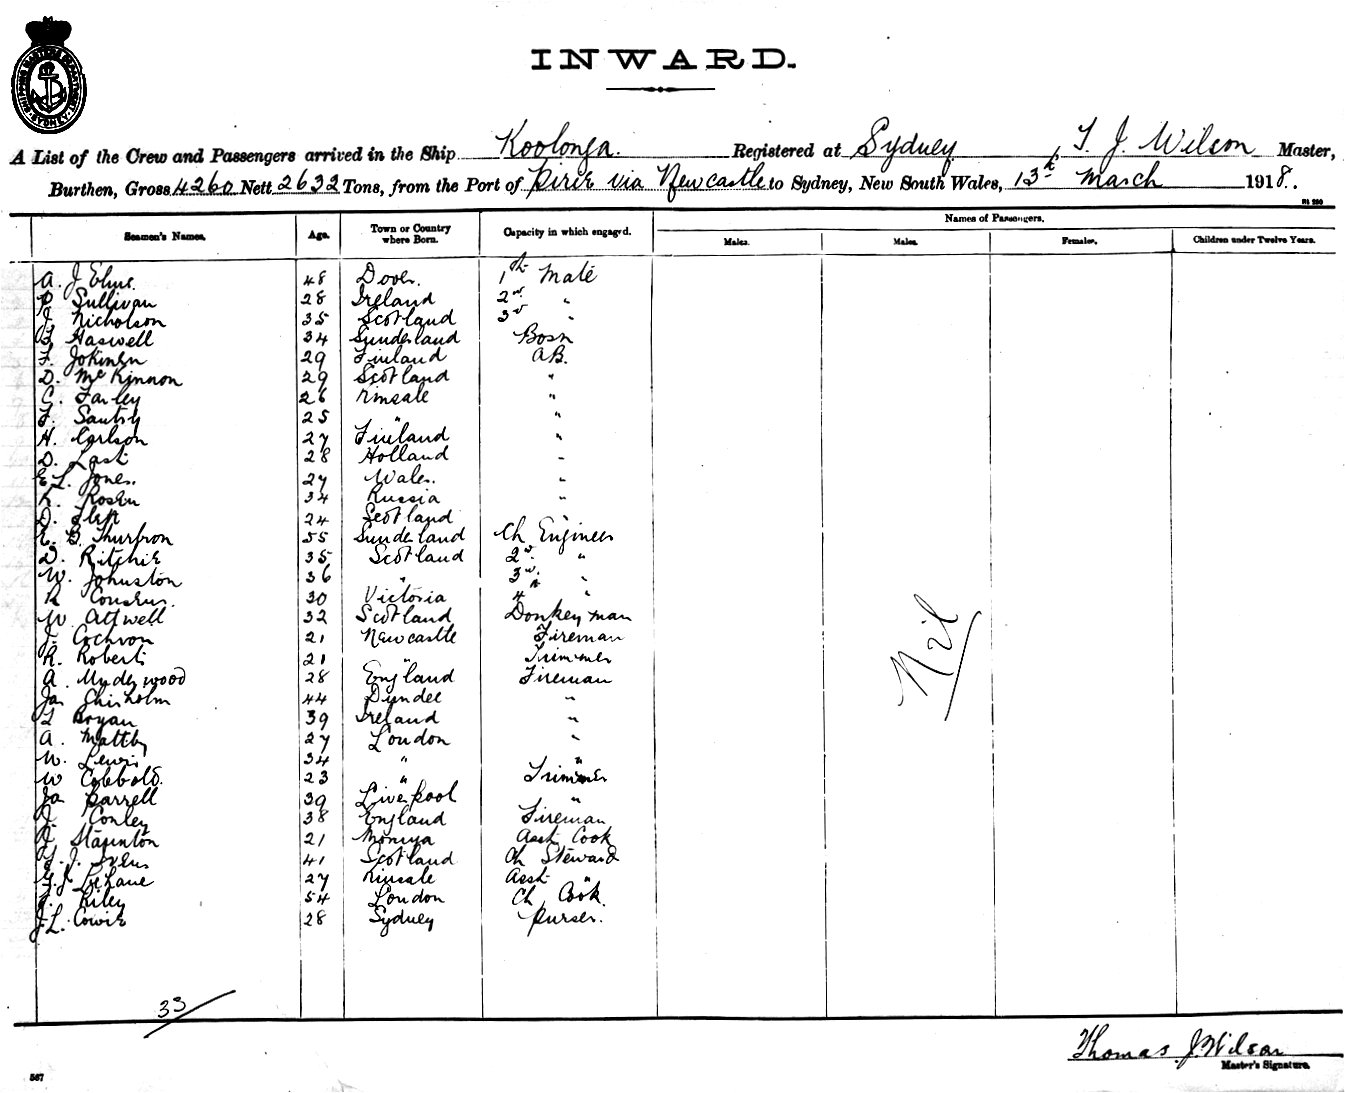 SHIPPING MASTERS DEPARTMENT SYDNEY
INWARD.
A List of the Crew and Passengers arrived in the Ship Koolonga. Registered at Sydney, T. J. Wilson Master,
Burthen, Gross 4260 Nett 2632 Tons, from the Port of Pirie via Newcastle to Sydney, New South Wales, 13th March 1918.
Names of Passengers.
Seamen's Names. Age. Town or Country where Born. Capacity in which engaged. Males. Males. Females. Children under Twelve Years.
A. J. 48 Dover. 1st Mate
P Sullivan 28 Ireland 2nd "
J. Nicholson 35 Scotland 3rd "
Haswell 34 Sunderland Bosn
F. Jokinen 29 Finland AB.
D. McKinnon 29 Scotland "
C. Farley 26 Kinsale "
F. Santry 25 " "
H. Carlson 27 Finland "
D. Last 28 Holland "
E L. Jones. 27 Wales. "
K. Rosen 34 Russia "
D. 24 Scotland "
E. B. 55 Sunderland Ch Engineer
D. Ritchie 35 Scotland 2nd "
W. Johnston 36 " 3rd "
R Cousens. 30 Victoria 4th "
W. Attwell 32 Scotland Donkeyman
J. Cochron 21 Newcastle Fireman
R. Roberts 21 " Trimmer
A. Underwood 28 England Fireman
Jas Chisholm 44 Dundee "
T Bryan 39 Ireland "
A. Maltby 27 London "
W. Lewis 34 " "
W Cobbold. 23 " Trimmer
Jas Parrell 39 Liverpool "
Conley 38 England Fireman
Staunton 21 Asst Cook
T. J. 41 Scotland Ch Steward
Lehane 27 Kinsale Asst "
Riley 54 London Ch Cook.
J. L. Cowie 28 Sydney Purser.
Nil
33
Thomas J. Wilson
Master's Signature.
567